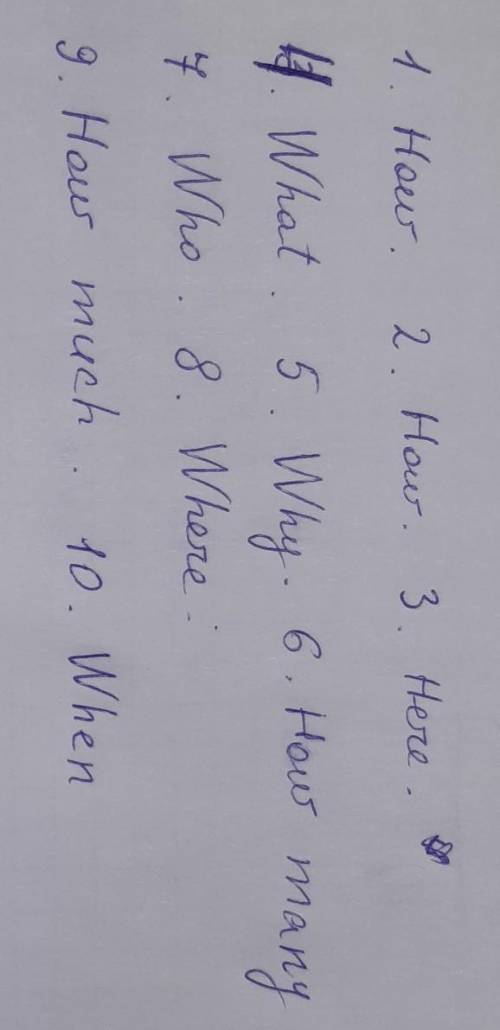 1. How. 2. How. 3. Here.
4. What. 5. Why. 6. How many
7. Who. 8. Where.
9. How much. 10. When